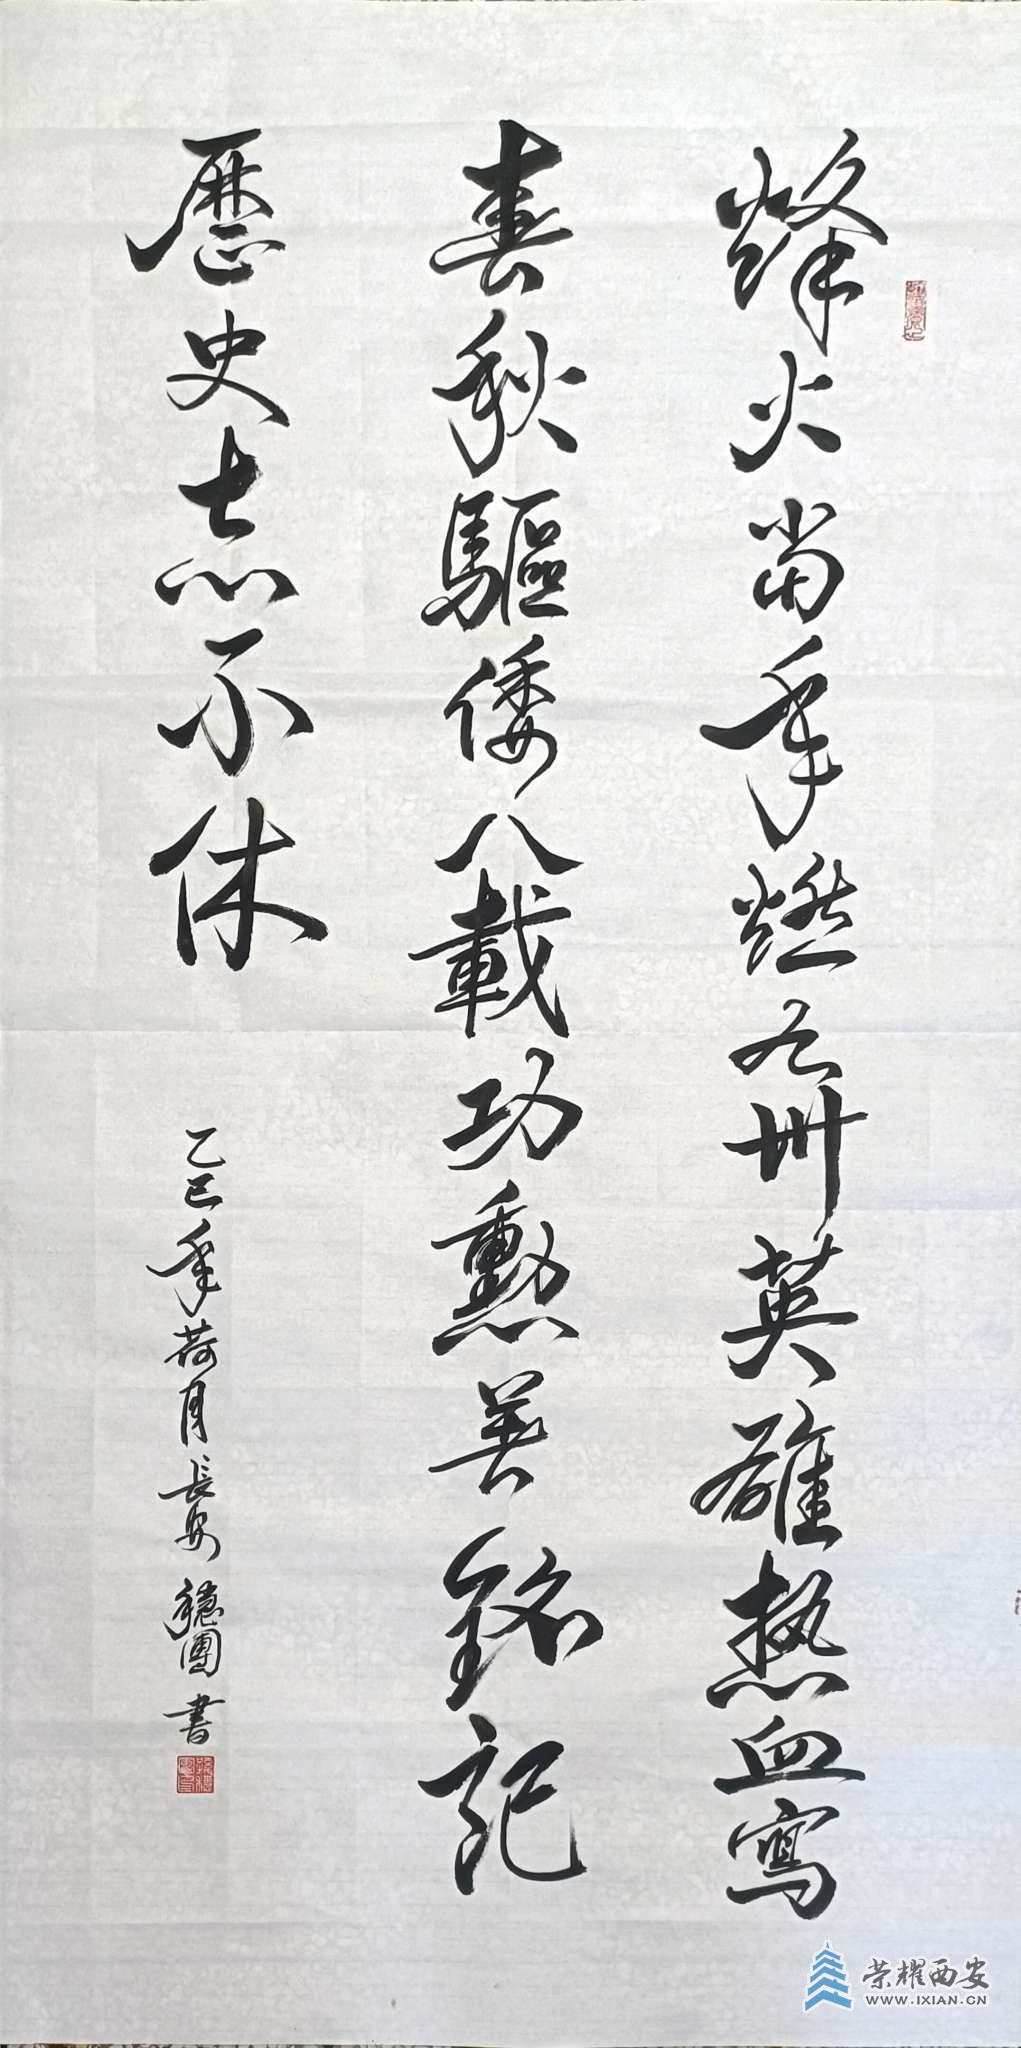 烽火当年燃九州英雄热血寫
春秋驅倭八載功勳善銘記
歷史志不休
乙巳年荷月長安穩團書
荣耀西安
WWW.IXIAN.CN